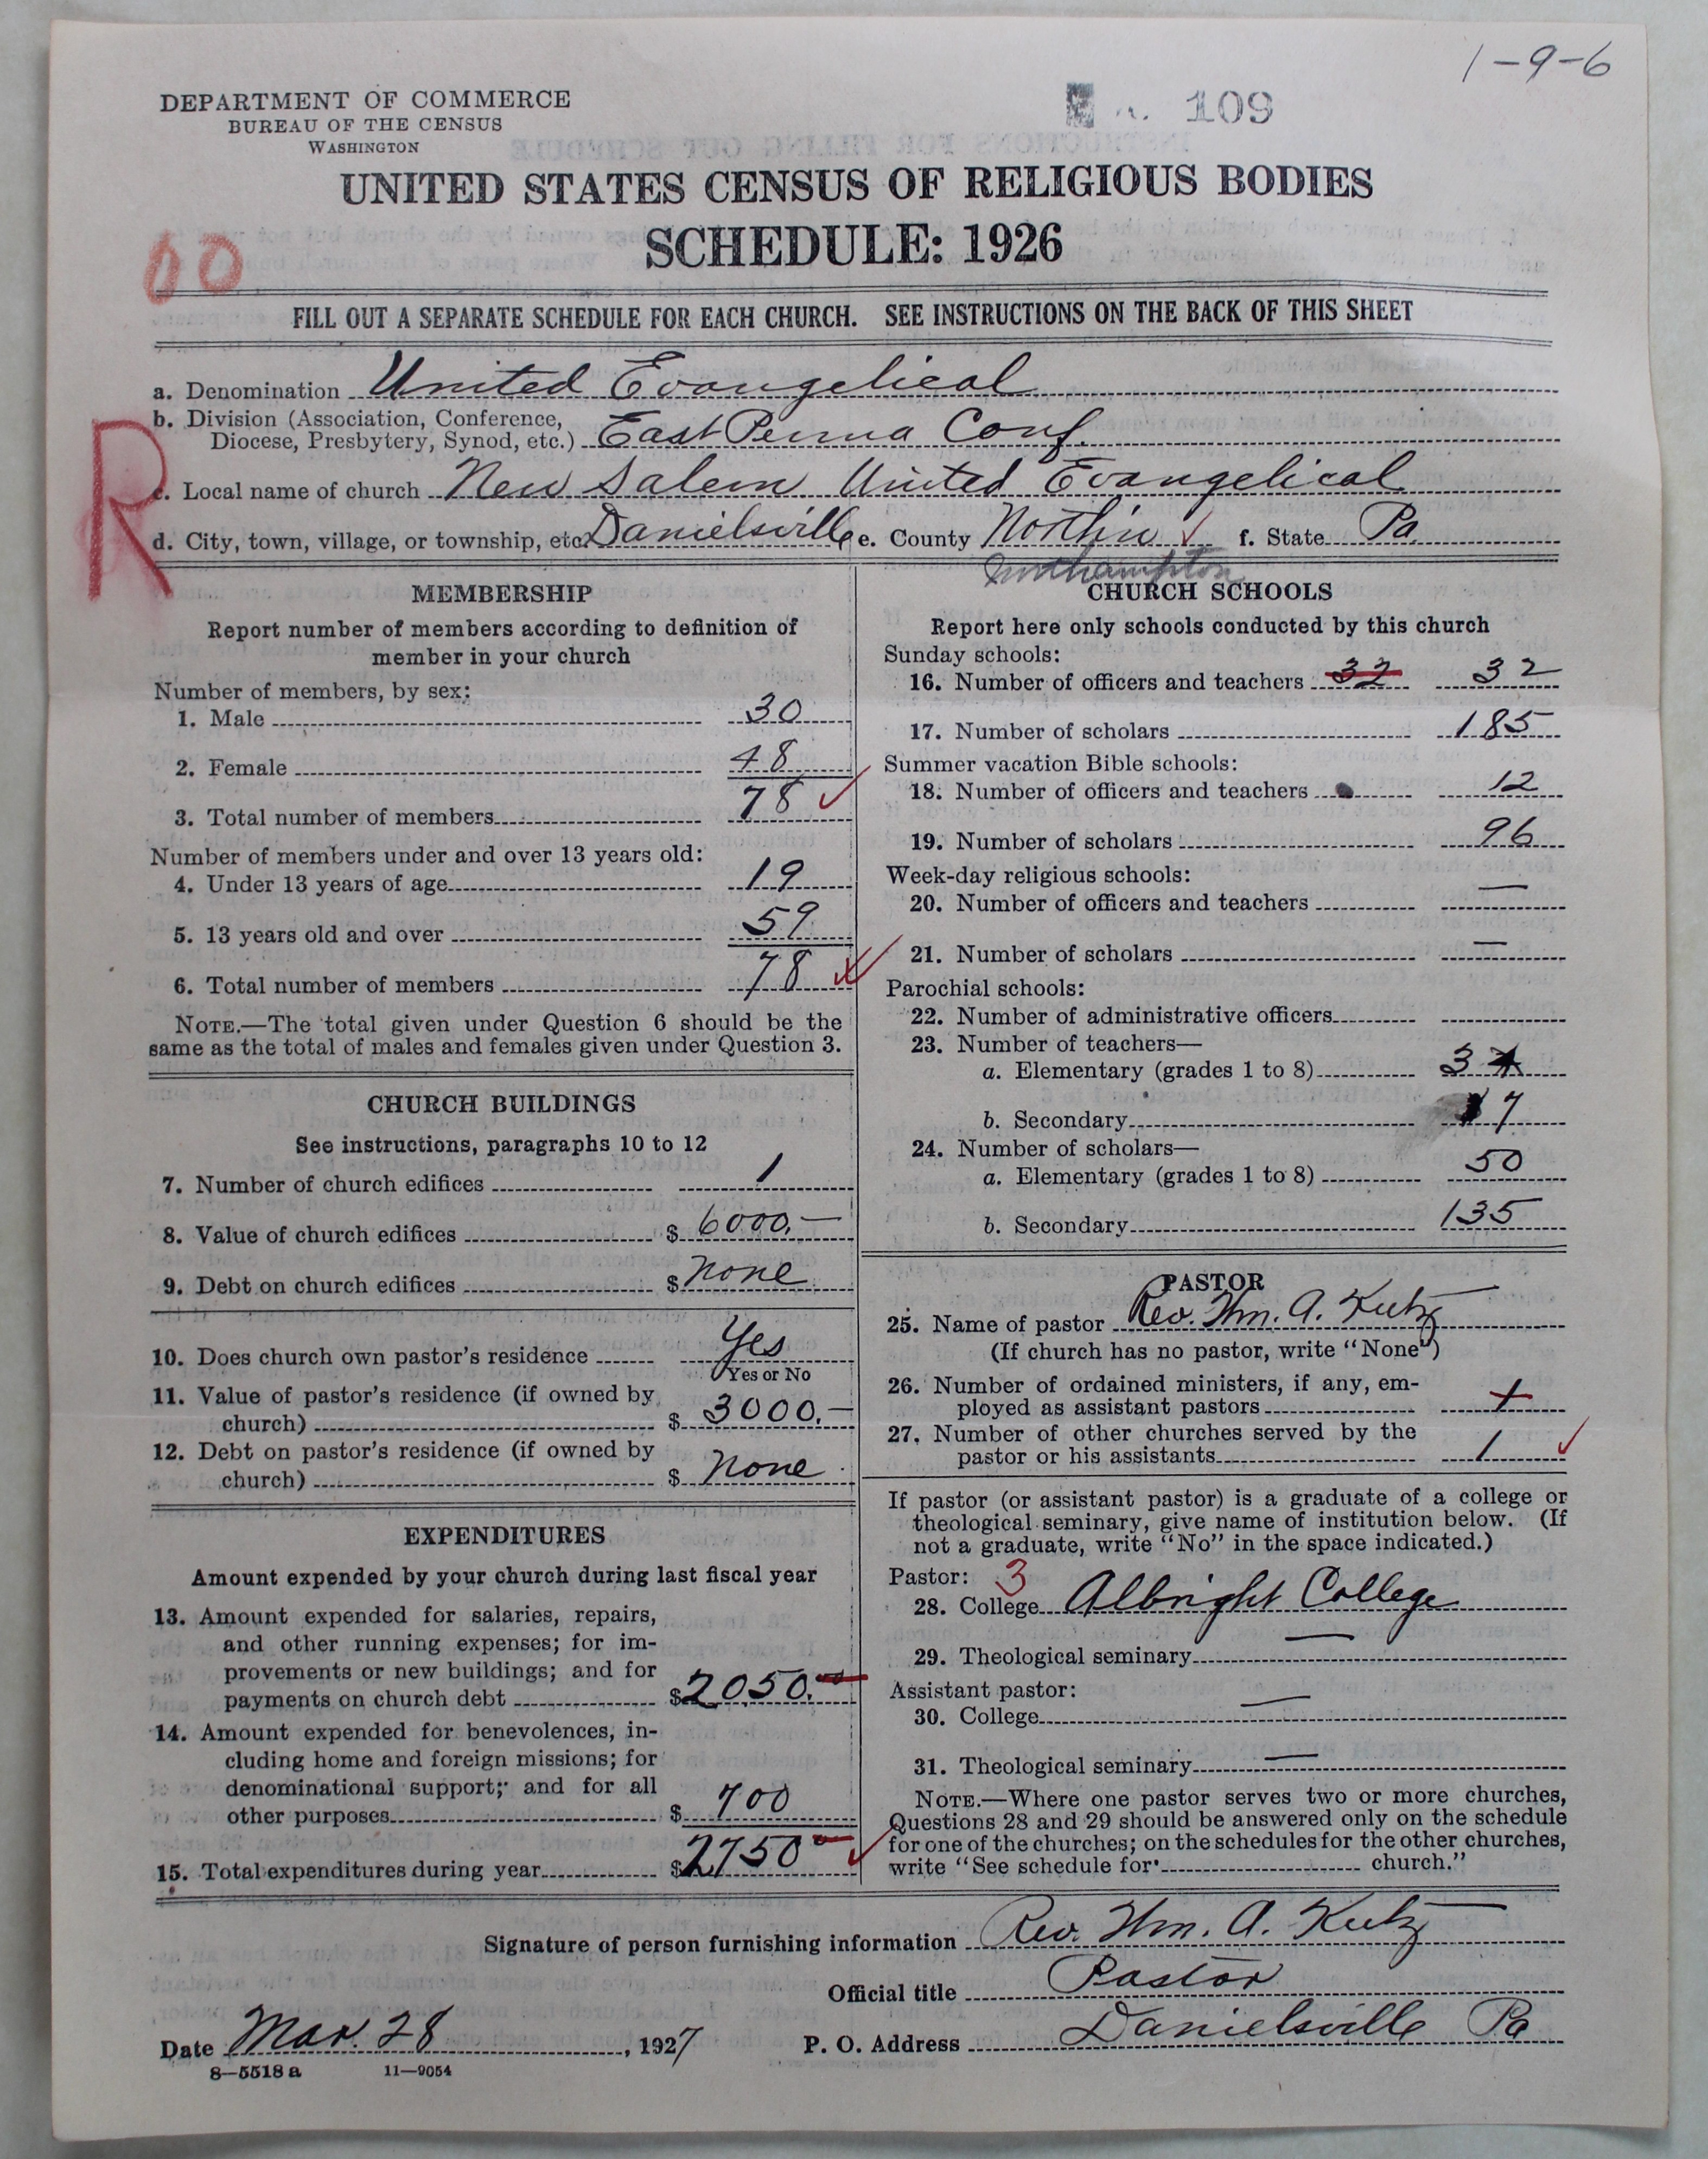 1-9-6
DEPARTMENT OF COMMERCE
BUREAU OF THE CENSUS
WASHINGTON
109
UNITED STATES CENSUS OF RELIGIOUS BODIES
SCHEDULE: 1926
60
FILL OUT A SEPARATE SCHEDULE FOR EACH CHURCH. SEE INSTRUCTIONS ON THE BACK OF THIS SHEET
a. Denomination United Evangelical
b. Division (Association, Conference,
Diocese, Presbytery, Synod, etc.) East Penna Conf.
R
c. Local name of church New Salem United Evangelical
d. City, town, village, or township, etc. Danielsville e. County f. State Pa
Northampton
MEMBERSHIP
Report number of members according to definition of
member in your church
Number of members, by sex:
1. Male 30
2. Female 48
3. Total number of members 78
Number of members under and over 13 years old:
4. Under 13 years of age 19
5. 13 years old and over 59
6. Total number of members 78
NOTE.—The total given under Question 6 should be the
same as the total of males and females given under Question 3.
CHURCH BUILDINGS
See instructions, paragraphs 10 to 12
7. Number of church edifices 1
8. Value of church edifices $ 6000.—
9. Debt on church edifices $ none
10. Does church own pastor's residence Yes
Yes or No
11. Value of pastor's residence (if owned by
church) $ 3000.—
12. Debt on pastor's residence (if owned by
church) $ none
EXPENDITURES
Amount expended by your church during last fiscal year
13. Amount expended for salaries, repairs,
and other running expenses; for im-
provements or new buildings; and for
payments on church debt $ 2050.
14. Amount expended for benevolences, in-
cluding home and foreign missions; for
denominational support; and for all
other purposes $ 700
15. Total expenditures during year $ 2750
CHURCH SCHOOLS
Report here only schools conducted by this church
Sunday schools:
16. Number of officers and teachers 32 32
17. Number of scholars 185
Summer vacation Bible schools:
18. Number of officers and teachers 12
19. Number of scholars 96
Week-day religious schools:
20. Number of officers and teachers —
21. Number of scholars —
Parochial schools:
22. Number of administrative officers
23. Number of teachers—
a. Elementary (grades 1 to 8) 3
b. Secondary 7
24. Number of scholars—
a. Elementary (grades 1 to 8) 50
b. Secondary 135
PASTOR
25. Name of pastor Rev. Wm. A. Kutz
(If church has no pastor, write "None")
26. Number of ordained ministers, if any, em-
ployed as assistant pastors 1
27. Number of other churches served by the
pastor or his assistants 1
If pastor (or assistant pastor) is a graduate of a college or
theological seminary, give name of institution below. (If
not a graduate, write "No" in the space indicated.)
Pastor: 3
28. College Albright College
29. Theological seminary —
Assistant pastor:
30. College —
31. Theological seminary —
NOTE.—Where one pastor serves two or more churches,
Questions 28 and 29 should be answered only on the schedule
for one of the churches; on the schedules for the other churches,
write "See schedule for church."
Signature of person furnishing information Rev. Wm. A. Kutz
Official title Pastor
Date Mar. 28, 1927 P. O. Address Danielsville Pa
8—5518 a 11—9054